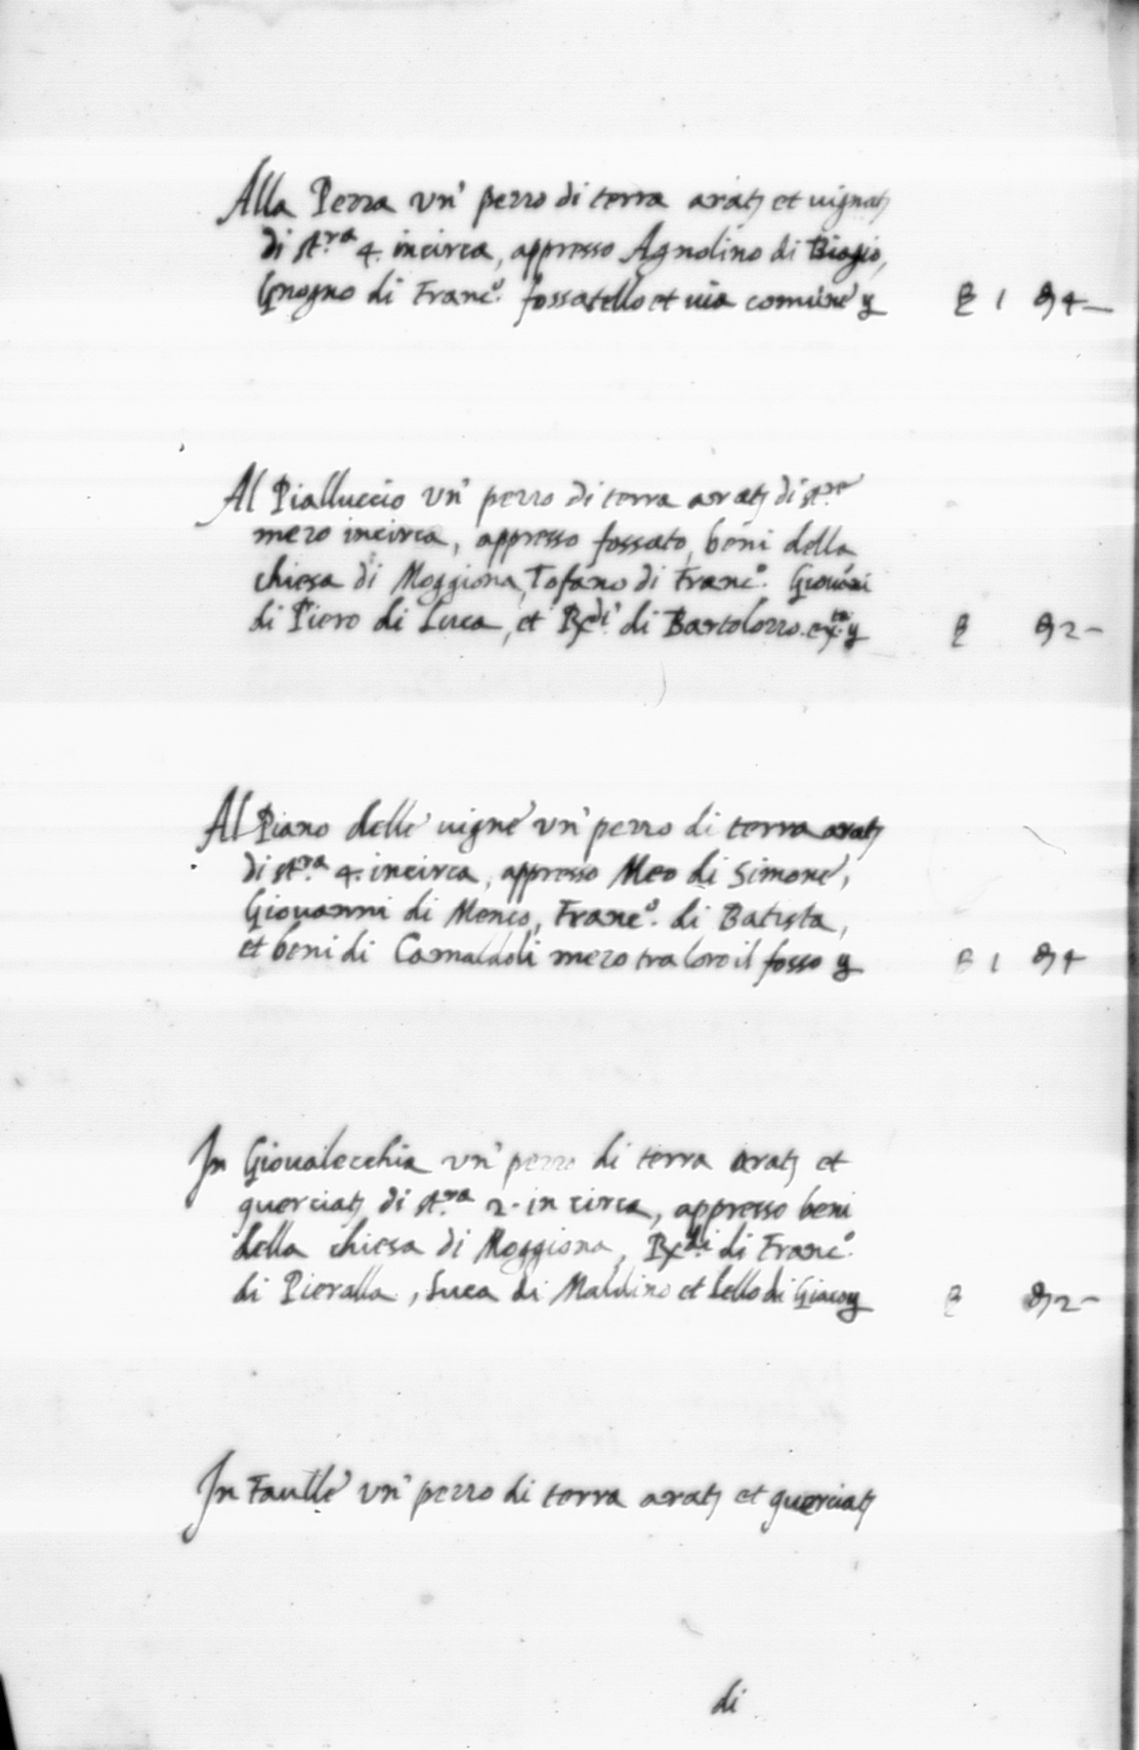 Alla Pezza un' pezzo di terra arat. et uignat.
di st.ra 4. incirca, appresso Agnolino di Biagio,
Gnogno di Franc.o fossatello et uia comune
1 4—
Al Pialluccio un' pezzo di terra arat. di st.ro
mezo incirca, appresso fossato, beni della
chiesa di Moggiona, Tofano di Franc.o Giouani
di Piero di Luca, et Rx.di di Bartolozzo.
2-
Al Piano delle uigne un' pezzo di terra arat.
di st.ra 4. incirca, appresso Meo di Simone,
Giouanni di Menco, Franc.o di Batista,
et beni di Camaldoli mezo tra loro il fosso
1 4
In Gioualecchia un' pezzo di terra arat. et
querciat. di st.ra 2. in circa, appresso beni
della chiesa di Moggiona, Rx.di di Franc.o
di Pieralla, Luca di Maldino et Lello di Giaco
2-
In Faulle un' pezzo di terra arat. et querciat.
di